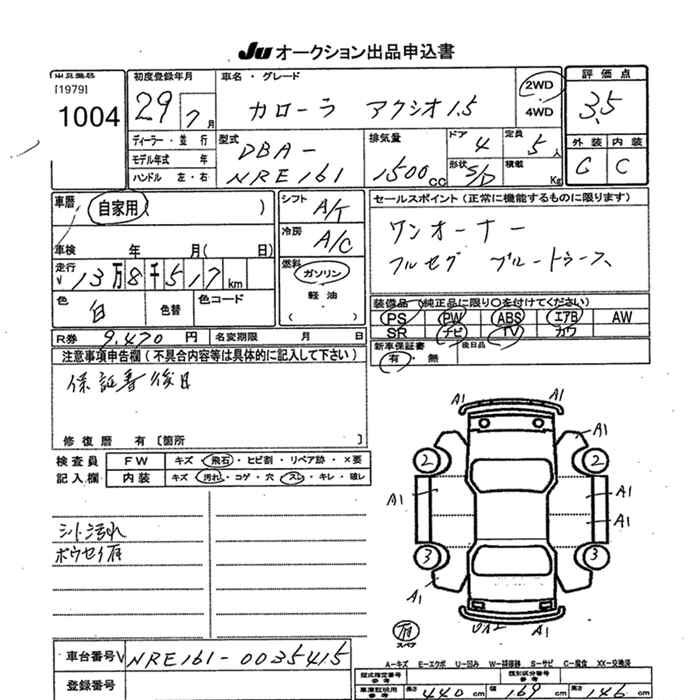 Ju オークション出品申込書
[1979]
1004
初度登録年月
29 7月
車名・グレード
カローラ アクシオ 1.5
2WD
4WD
評価点
3.5
外装 内装
C C
ディーラー・並行
モデル年式 年
ハンドル 左・右
型式
DBA-
NRE161
排気量
1500cc
ドア 4
形状 S/D
定員 5人
積載 Kg
車歴
自家用( )
車検 年 月( 日)
走行
13万8千517km
色 白
色替
色コード
シフト A/T
冷房 A/C
燃料
ガソリン
軽油
( )
セールスポイント(正常に機能するものに限ります)
ワンオーナー
フルセグ ブルートゥース
装備品(純正品に限り○を付けてください)
PS PW ABS エアB AW
SR ナビ TV カワ
新車保証書
有・無
後日品
R券 9,470円
名変期限 月 日
注意事項申告欄(不具合内容等は具体的に記入して下さい)
保証書後日
修復歴 有〔箇所 〕
検査員
記入欄
FW キズ・飛石・ヒビ割・リペア跡・×要
内装 キズ・汚れ・コゲ・穴・スレ・キレ・破レ
シート汚れ
ボウセイ有
A1 A1
A1
2 2
A1 A1
A1
3 3
A1 A1
A1
有
スペア
A-キズ E-エクボ U-凹み W-補修跡 S-サビ C-腐食 XX-交換済
車台番号 NRE161-0035415
登録番号
型式指定番号
参考
類別区分番号
参考
車庫証明用
参考
長さ 440cm 幅 169cm 高さ 146cm